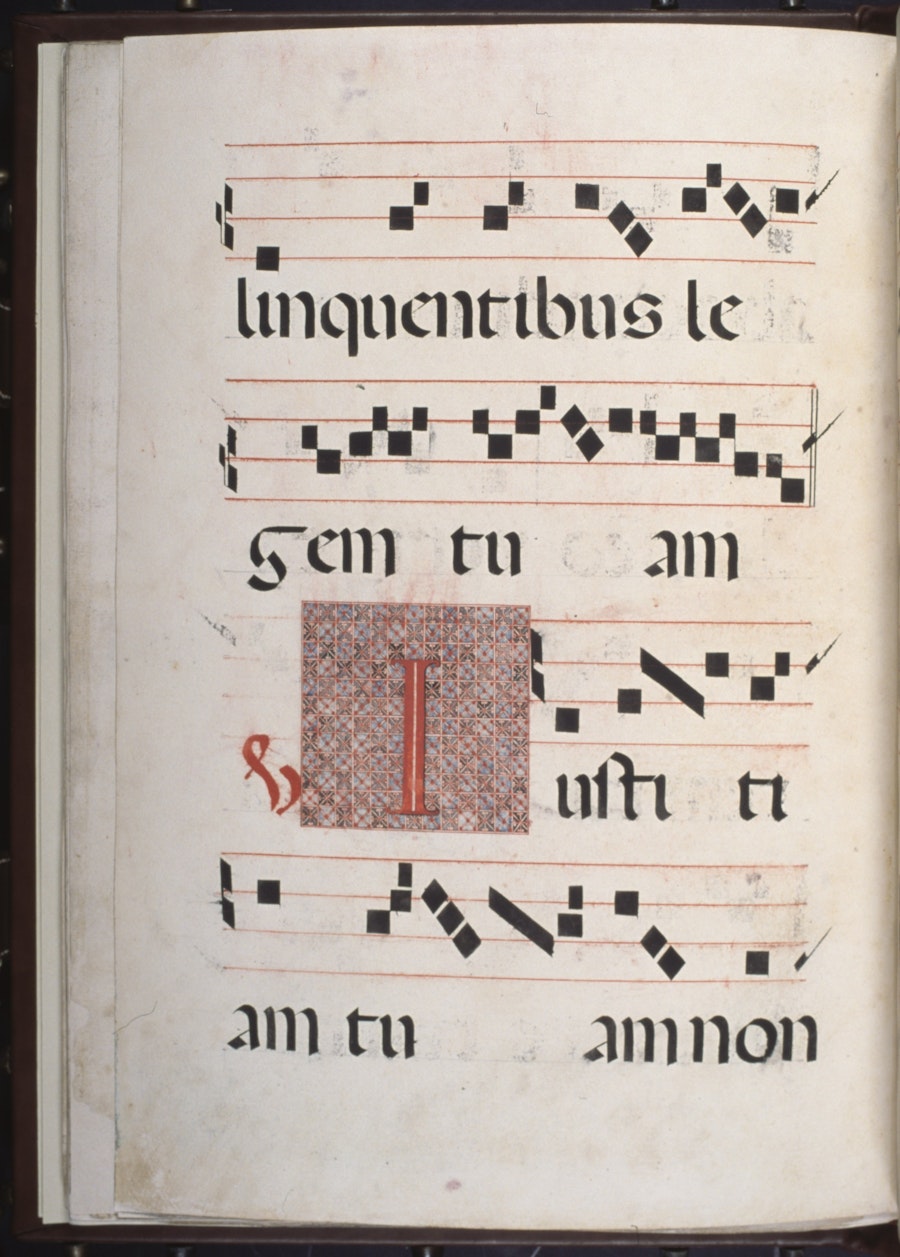 linquentibus le
gem tu am
V Iusti ti
am tu am non